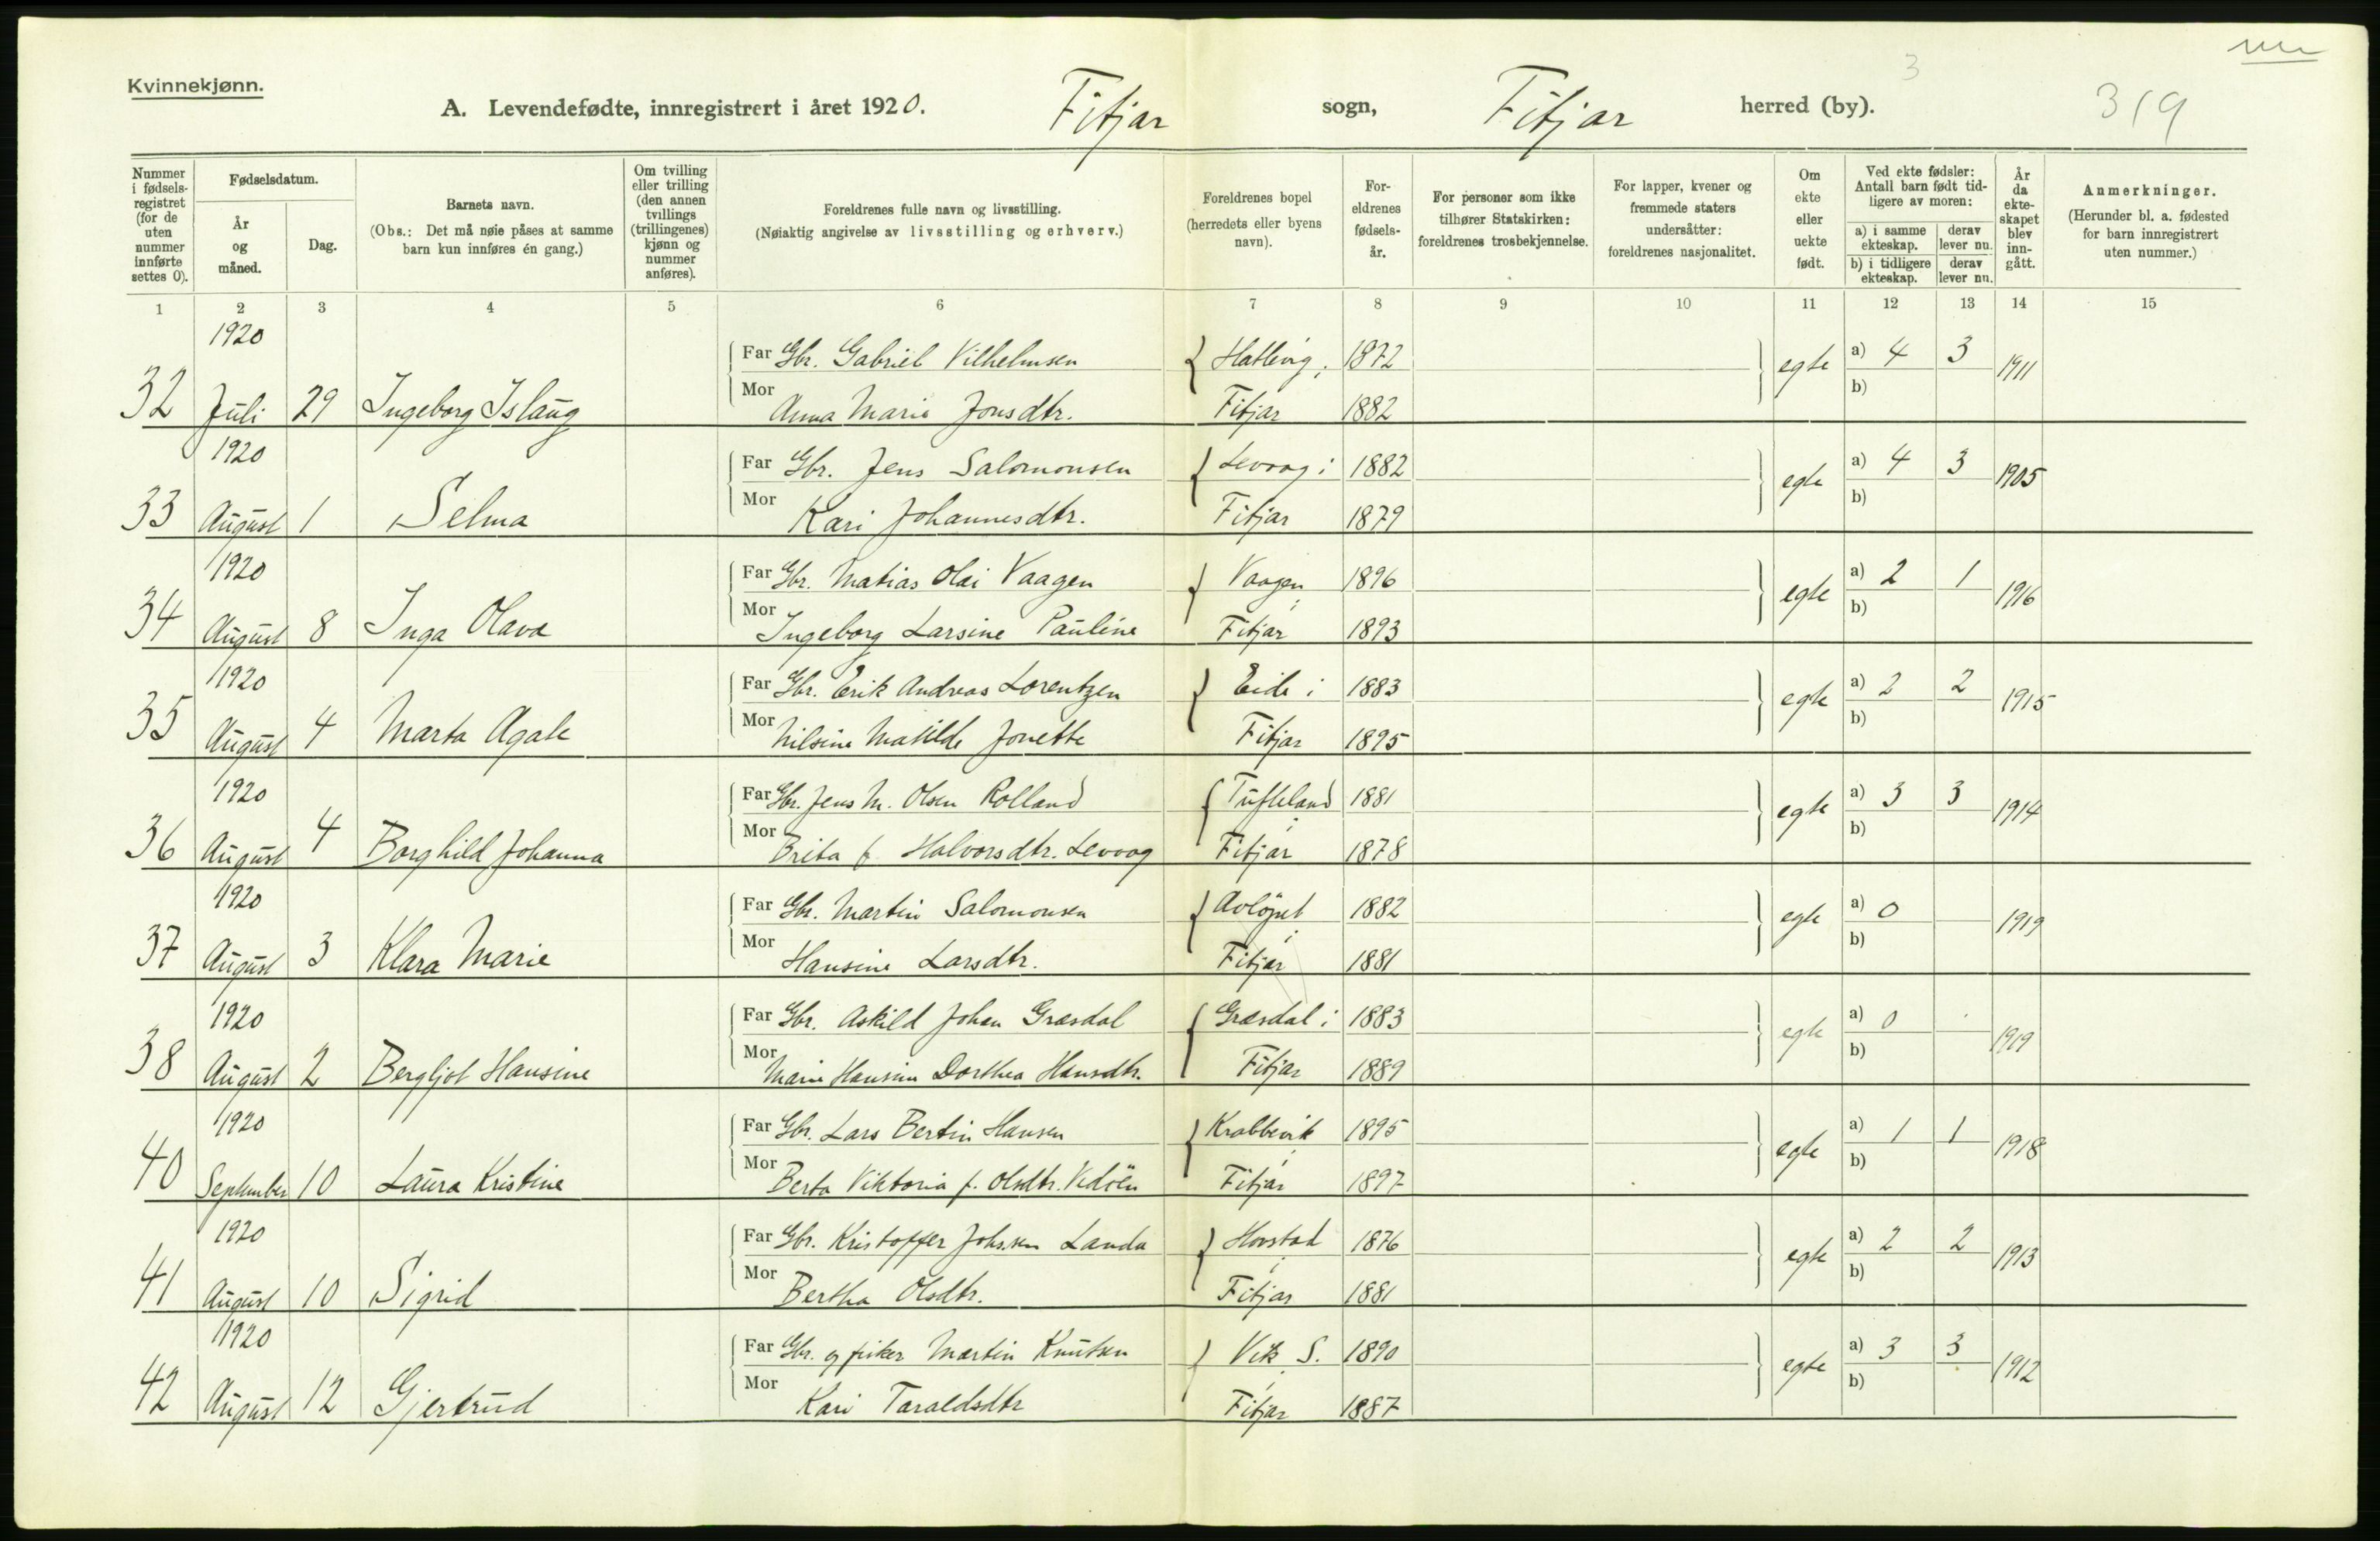 Kvinnekjønn.
A. Levendefødte, innregistrert i året 1920. Fitjar sogn, Fitjar herred (by). 3 319
Nummer i fødsels-registret (for de uten nummer innførte settes 0).
Fødselsdatum.
År og måned.
Dag.
Barnets navn.
(Obs.: Det må nøie påses at samme barn kun innføres én gang.)
Om tvilling eller trilling (den annen tvillings (trillingenes) kjønn og nummer anføres).
Foreldrenes fulle navn og livsstilling.
(Nøiaktig angivelse av livsstilling og erhverv.)
Foreldrenes bopel (herredets eller byens navn).
For-eldrenes fødsels-år.
For personer som ikke tilhører Statskirken: foreldrenes trosbekjennelse.
For lapper, kvener og fremmede staters undersåtter: foreldrenes nasjonalitet.
Om ekte eller uekte født.
Ved ekte fødsler: Antall barn født tid-ligere av moren:
a) i samme ekteskap. derav lever nu.
b) i tidligere ekteskap. derav lever nu.
År da ekte-skapet blev inn-gått.
Anmerkninger.
(Herunder bl. a. fødested for barn innregistrert uten nummer.)
1 2 3 4 5 6 7 8 9 10 11 12 13 14 15
1920 Far Gbr. Gabriel Vilhelmsen Hatlevig i 1872 egte a) 4 3 1911
32 Juli 29 Ingeborg Islaug Mor Anna Marie Jonsdtr. Fitjar 1882 b)
1920 Far Gbr. Jens Salomonsen Levaag i 1882 egte a) 4 3 1905
33 August 1 Selma Mor Kari Johannesdtr. Fitjar 1879 b)
1920 Far Gbr. Matias Olai Vaagen Vaagen i 1896 egte a) 2 1 1916
34 August 8 Inga Olava Mor Ingeborg Larsine Pauline Fitjar 1893 b)
1920 Far Gbr. Erik Andreas Lorentzen Eide i 1883 egte a) 2 2 1915
35 August 4 Marta Agate Mor Nilsine Matilde Jonette Fitjar 1895 b)
1920 Far Gbr. Jens M. Olsen Rolland Tufteland i 1881 egte a) 3 3 1914
36 August 4 Borghild Johanna Mor Brita f. Halvorsdtr. Levaag Fitjar 1878 b)
1920 Far Gbr. Martin Salomonsen Avløpet i 1882 egte a) 0 1919
37 August 3 Klara Marie Mor Hansine Larsdtr. Fitjar 1881 b)
1920 Far Gbr. Askild Johan Græsdal Græsdal i 1883 egte a) 0 1919
38 August 2 Bergljot Hansine Mor Marie Hansine Dorthea Hansdtr. Fitjar 1889 b)
1920 Far Gbr. Lars Bertin Hansen Krabbevik i 1895 egte a) 1 1 1918
40 September 10 Laura Kristine Mor Berta Viktoria f. Olsdtr. Vidøen Fitjar 1897 b)
1920 Far Gbr. Kristoffer Johs.sen Landa Hovstad i 1876 egte a) 2 2 1913
41 August 10 Sigrid Mor Bertha Olsdtr. Fitjar 1881 b)
1920 Far Gbr. og fisker Martin Knutsen Vik S. i 1890 egte a) 3 3 1912
42 August 12 Gjertrud Mor Kari Taraldsdtr Fitjar 1887 b)